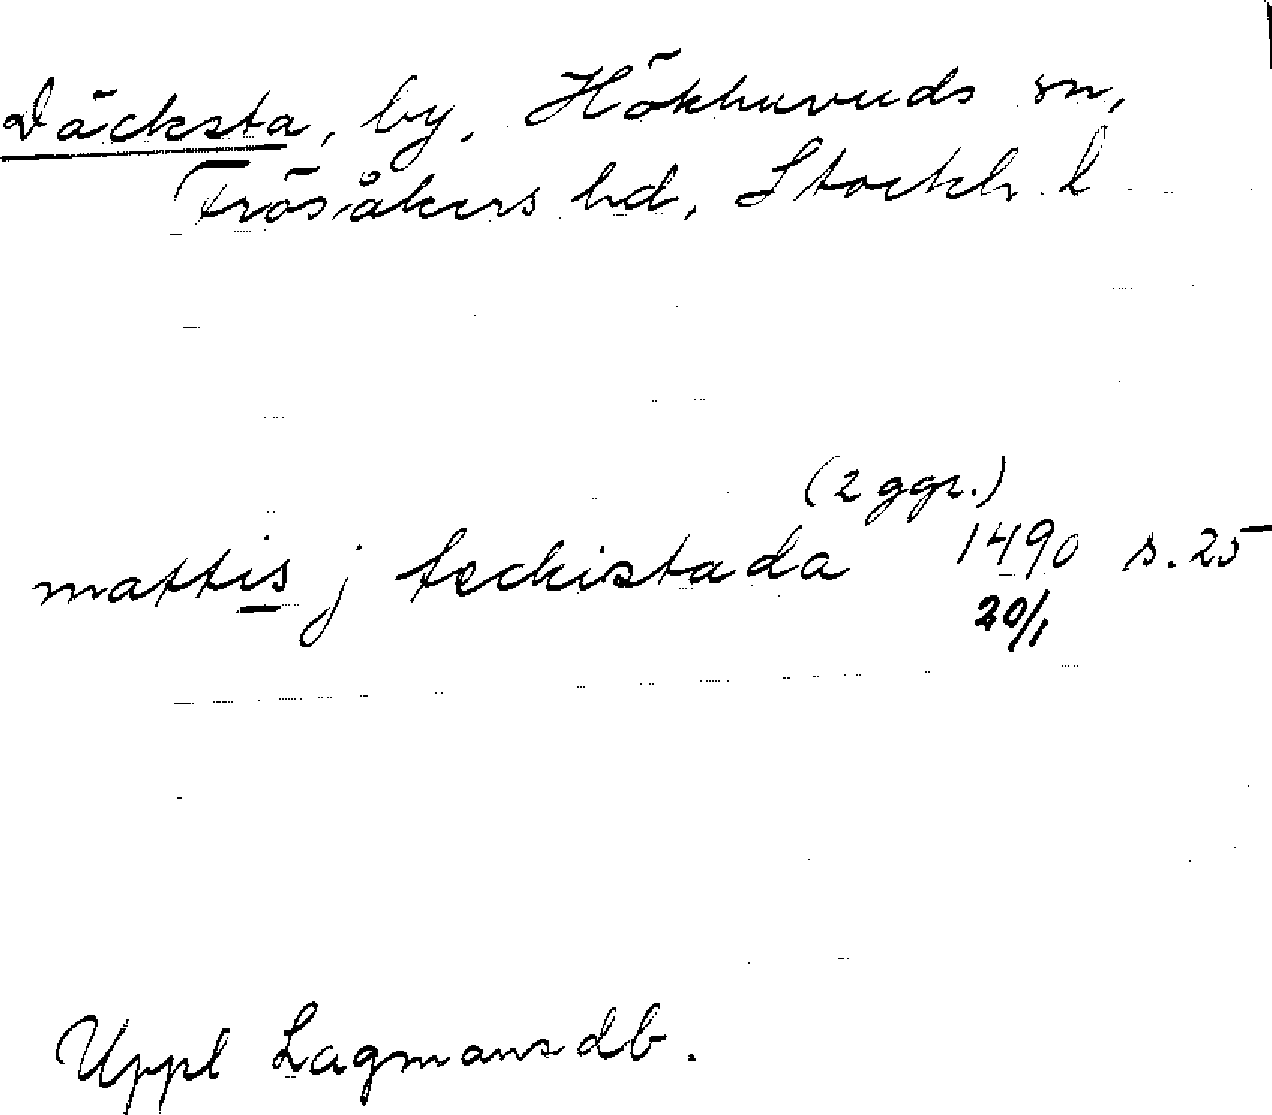 Däcksta, by, Hökhuvuds sn,
Frösåkers hd, Stockh. l
(2 ggr.)
mattis j teckistada 1490 s. 25
20/1
Uppl Lagmansdb.